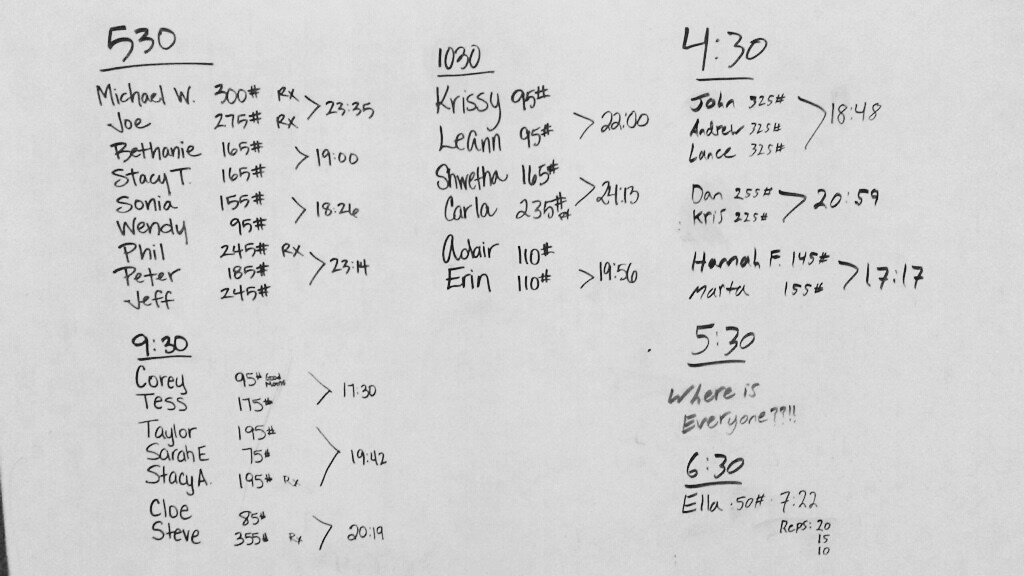 530
Michael W. 300# Rx
Joe 275# Rx > 23:35
Bethanie 165#
Stacy T. 165# > 19:00
Sonia 155#
Wendy 95# > 18:26
Phil 245# Rx
Peter 185# > 23:14
Jeff 245#
9:30
Corey 95# Good Morns
Tess 175# > 17:30
Taylor 195#
Sarah E 75#
Stacy A. 195# Rx > 19:42
Cloe 85#
Steve 355# Rx > 20:19
1030
Krissy 95#
Leann 95# > 22:00
Shwetha 165#
Carla 235# > 24:13
Adair 110#
Erin 110# > 19:56
4:30
John 325#
Andrew 325# > 18:48
Lance 325#
Dan 255#
Kris 225# > 20:59
Hannah F. 145#
Marta 155# > 17:17
5:30
Where is
Everyone??!!
6:30
Ella · 50# · 7:22
Reps: 20
15
10